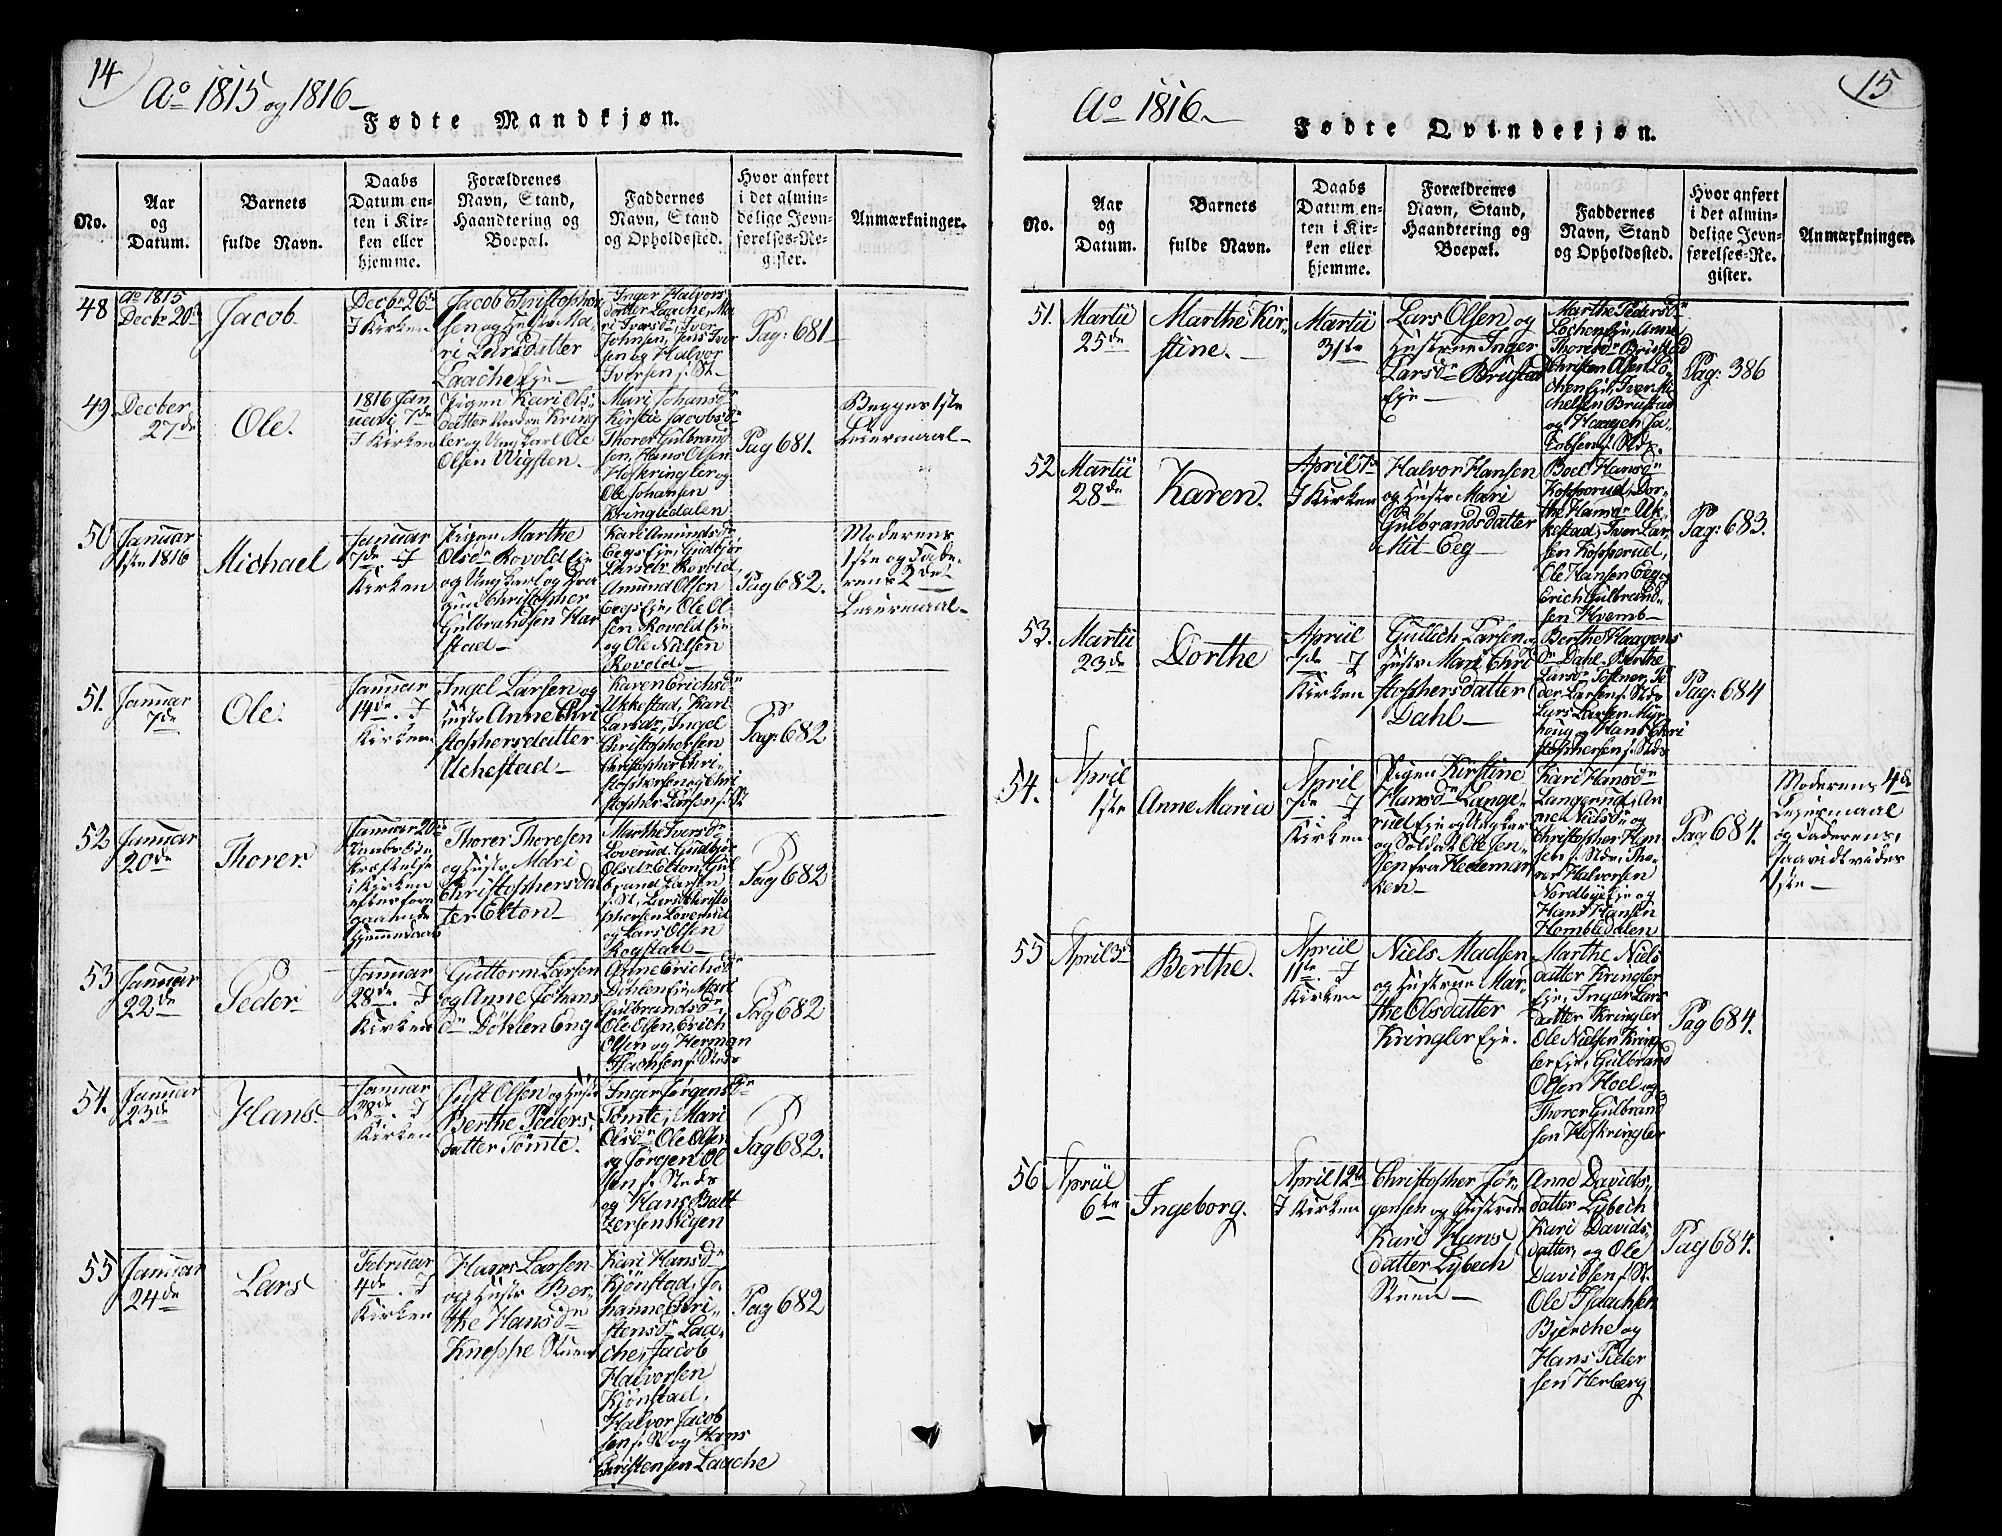 14
Ao 1815 og 1816
Fødte Mandkjøn.
No.
Aar
og
Datum.
Barnets
fulde Navn.
Daabs
Datum en-
ten i Kir-
ken eller
hjemme.
Forældrenes
Navn, Stand,
Haandtering og
Boepæl.
Faddernes
Navn, Stand
og Opholdssted.
Hvor anført
i det almin-
delige Jevn-
førelses-Re-
gister.
Anmærkninger.
48
Ao 1815
Decbr 20de
Jacob
Decbr 26de
I Kirken
Jacob Christopher
sen og Hustr Ma-
ri Larsdatter
Laache Eje
Inger Halvors
datter Laache, Ma
ri Iversdr, Iver
Johnsen, Jens Iver
sen og Halvor
Iversen f. St.
Pag: 681
49
Decber
27de
Ole.
1816 Jan
uarij 7de
I Kirken
Pigen Kari Ols
datter Nordre Kring
ler og Ung Karl Ole
Olsen Wigsten.
Mari Johansdr
Kirstie Jacobsdr
Thorer Gulbrand
sen, Hans Olsen
Hofkringler og
Ole Johansen
Kringledalen
Pag 681.
Begges 1ste
Leiermaal
50
Januar
1ste 1816
Michael
Januar
7de I
Kirken
Pigen Marthe
Olsdr Rovold Eje
og Ung Karl og Dra
gun Christopher
Gulbrandsen Har
stad
Kari Amundsdr
Eegs Eje, Gudbjør
Larsdr Rovold,
Amund Olsen
Eegs Eje, Ole Ol
sen Rovold Eje
og Ole Nielsen
Rovold
Pag 682.
Moderens
1ste og Fade-
rens 2det
Leiermaal
51.
Januar
7de
Ole.
Januar
14de. I
Kirken
Ingel Larsen og
Hustr Anne Chri
stophersdatter
Uchestad
Karen Erichsdr
Ukkestad, Kari
Larsdr, Ingel
Christophersen
Christopher Chri-
stophersen og Chri
stopher Larsen f. St
Pag: 682
52
Januar
20de
Thorer.
Januar 20de
i Kirken
efter fore
gaaende
Hjemmedaab
Thorer Thoresen
og Hustr Mari
Christophersdat
ter Elton
Marthe Iversdr
Loverud, Gudbjør
Olsdr Elton, Gul
brand Larsen
f. St, Lars Christo
phersen Loverud
og Lars Olsen
Rogstad
Pag 682
53
Januar
22de
Peder
Januar
28de. I
Kirken
Guttorm Larsen
og Anne Johans
dr Döhlen Eng
Anne Erichsdr
Döhlen Eje, Mari
Gulbrandsdr,
Ole Olsen, Erich
Olsen og Herman
Isachsen f. Steds
Pag 682
54.
Januar
23de
Hans.
Januar
28de. I
Kirken
Just Olsen og Hustr
Berthe Peders
datter Tömte.
Inger Jørgensdr
Tömte, Mari
Olsdr Ole Olsen
og Jørgen Ol
sen f. Steds
og Hans Balt
zersen Wigen
Pag 682.
55
Januar
24de
Lars
Februar
4de. I
Kirken
Hans Larsen
og Hustr Ber-
the Hansdr
Kneppe Stuen
Kari Hansdr
Kjönstad, Jo
hanne Chri-
stensdr Laa-
che, Jacob
Halvorsen
Kjönstad,
Halvor Jacob
sen f. St og Hans
Christensen Laache
Pag 682
15
Ao 1816
Fødte Qvindekjøn.
No.
Aar
og
Datum.
Barnets
fulde Navn.
Daabs
Datum en-
ten i Kir-
ken eller
hjemme.
Forældrenes
Navn, Stand,
Haandtering og
Boepæl.
Faddernes
Navn, Stand
og Opholdssted.
Hvor anført
i det almin-
delige Jevn-
førelses-Re-
gister.
Anmærkninger.
51.
Martii
25de
Marthe Kir-
stine.
Martii
31te
Lars Olsen og
Hustrue Inger
Larsdr Brustad
Eje
Marthe Pedersdr
Lochen Eje, Anne
Thoresdr Brustad
Christen Olsen Lo-
chen Eje, Iver Mi
chelsen Brustad
og Haagen Ja-
cobsen f. Sts.
Pag: 386
52
Martii
28de
Karen.
April 7de
I Kirken
Halvor Hansen
og Hustr Mari
Gulbrandsdatter
Mit-Eeg
Boel Hansdr
Kopperud, Dor-
the Hansdr Uk-
kestad, Iver Lar-
sen Kopperud,
Ole Hansen Eeg og
Erich Gulbrand-
sen Hvemb
Pag: 683.
53.
Martii
23de
Dorthe
Apriil
7de I
Kirken
Gullich Larsen og
Hustr Mari Chri
stophersdatter
Dahl
Berthe Haagens
dr Dahl, Berthe
Larsdr Toftner, Pe
der Larsen f. Sts,
Lars Larsen Myr
houg og Hans Chri
stophersen f. Sts
Pag: 684
54.
April
1ste
Anne Maria
April
7de I
Kirken
Pigen Kirstine
Hansdr Lange-
rud Eje og Ungkar
og Soldat Ole Jen-
sen fra Hedemar
ken
Kari Hansdr
Langerud, An
ne Nielsdr og
Christopher Han
sen f. Sts, Tho-
rer Halvorsen
Nordbye Eje og
Hans Hansen
Hembledalen
Pag 684.
Moderens 4de
Leiermaal
og Faderens,
saavidt vides
1ste
55
April 3de
Berthe.
Apriil
11te I
Kirken
Niels Madsen
og Hustrue Mar-
the Olsdatter
Kringler Eje.
Marthe Niels
datter Kringler
Eje, Inger Lars
datter Kringler
Ole Nielsen Kring
ler Eje, Gulbrand
Olsen Hoel og
Thorer Gulbrand
sen Hofkringler
Pag 684.
56
Apriil
6te
Ingeborg.
April 12te
I Kirken
Christopher Jør-
gensen og Hustrue
Kari Hans
datter Lybech
Stuen
Anne Davids-
datter Lybech
Kari Davids
datter, og Ole
Davidsen f. St.
Ole Isachsen
Bjerche og
Hans Peder
sen Herberg
Pag 684.